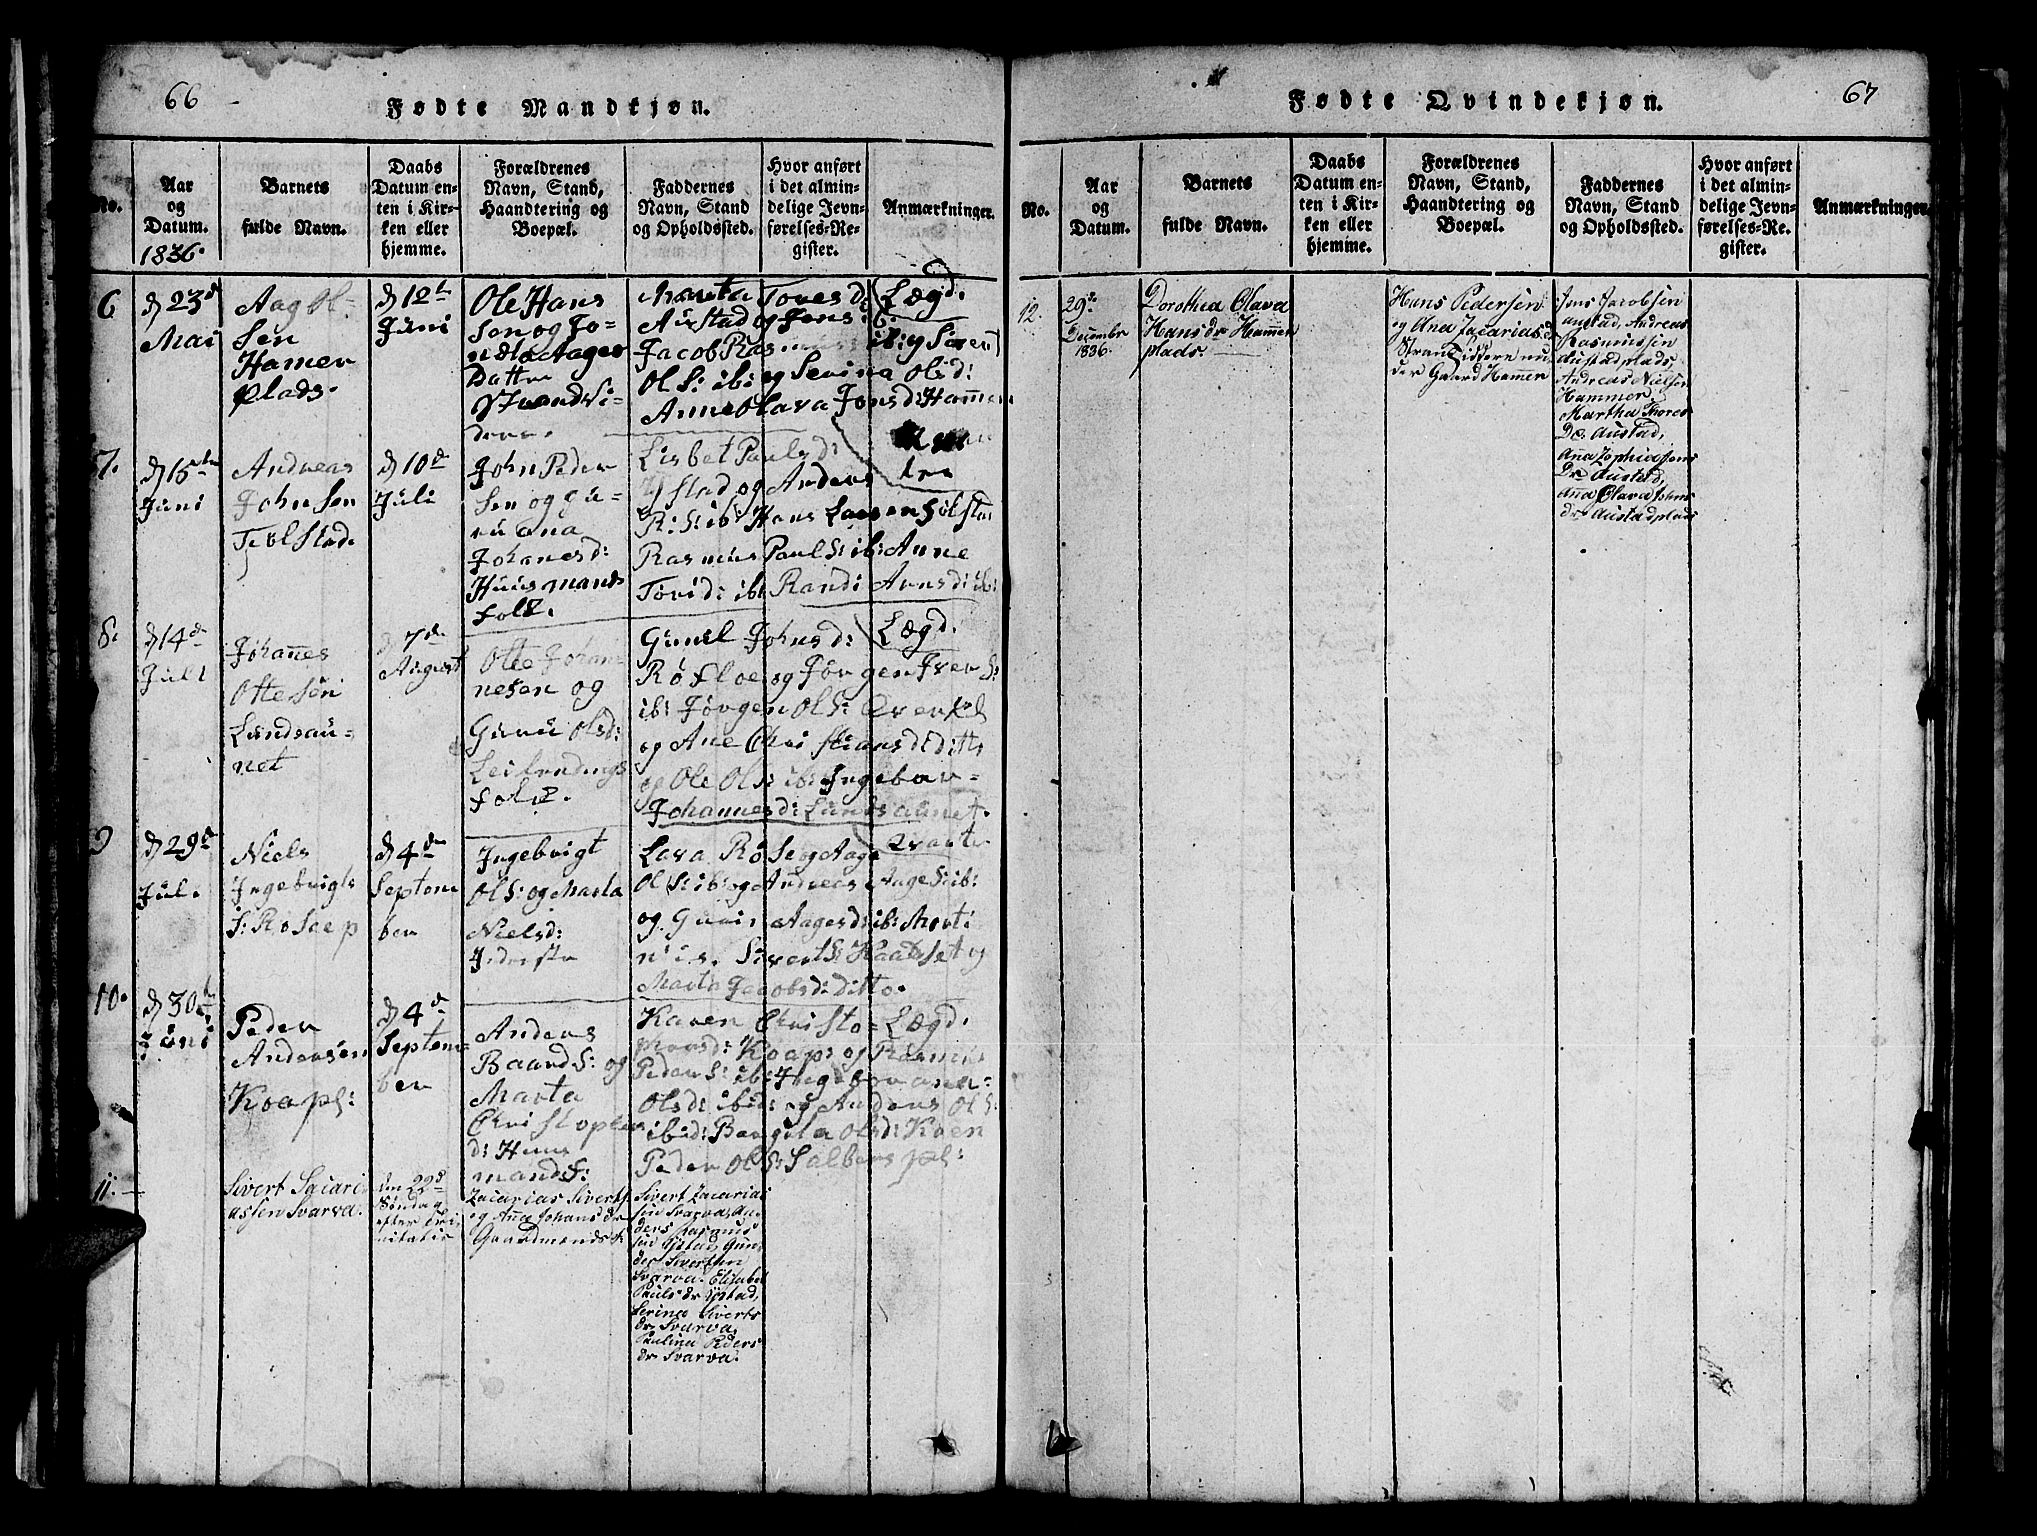 66
Fødte Mandkjøn.
No.
Aar
og
Datum.
1836.
Barnets
fulde Navn.
Daabs
Datum en-
ten i Kir-
ken eller
hjemme.
Forældrenes
Navn, Stand,
Haandtering og
Boepæl.
Faddernes
Navn, Stand
og Opholdssted.
Hvor anført
i det almin-
delige Jevn-
førelses-Re-
gister.
Anmærkninger.
6
d 23d
Mai
Aag Ol-
sen
Hamer
plads.
d 12t
Juni
Ole Hans
sen og Jo-
Aages
Datter
Strandsi-
dere.
Marta Tores d: Lægd.
Austad og Jens:
Jacob Ras
Ols: ib: og Serina Olsd:
Anne Olava Jonsd: Hammer
7.
d 15de
Juni
Andreas
John Sen
d 10de
Juli
John Peder
sen og Gu-
ru ana
Johanesd:
Huusmands
folk.
Lisbet Paulsd:
Ystad og Anders
R: S: ib: Hans Larsen
Rasmus Pauls: ib: Anne
Torid: ib: Randi Arnsd: ib:
8.
d 14de
Juli
Johannes
Otte Sen
Lundsau-
net
d 7de
August
Otte Johan-
nesen og
Guru Olsd:
Leilendings
folk.
Gunil Johnsd: Lægd.
Røfloe og Jørgen Iver S:
ib: Jørgen Ols: Qvenset
og Ane Christiansd: ditto
og Ole Ols: ib: Ingebor-
Johannesd: Lundsaunet.
9
d 29d
Jul.
Niels
Ingebrigts
S: Røsee p
d 4de
Septem
ber
Ingebrigt
Ols: og Marta
Nielsd:
Inderste
Lava Røse og Aage
Ols: ib: og Andreas Aage S: ib:
og Guru Aagesd: ib: Morti
nus. Siverts: Haadset og
Marta Jacobsd: ditto.
10.
d 30t
Juni
Peder
Andersen
Koapl:
d 4d
Septem-
ber
Anders
Baards: og
Marta
Christopher
d: Huus
mandsf:
Karen Christo- Lægd.
phersd: Koapl: og Rasmus
Peder S: ib: Ingebor ana-
Olsd: ibid: og Anders Ols:
ibid: Bergita Olsd: Koen
Peder Ols: Salberg pl:
11.
Sivert Saccari
assen Svarva.
den 22d
Søndag
efter Tri-
nitatis
Zacarias Siverts
og Aña Johansdr
Gaardmandsf:
Sivert Zacarias
sen Svarva, An-
ders Rasmus
sen Ystad, Gun-
der Sivertsen
Svarva. Elisabet
Paulsdr Ystad,
Serina Siverts
dr Svarva,
Paulina Peders
dr Svarva.
Fødte Qvindekjøn.
67
No.
Aar
og
Datum.
Barnets
fulde Navn.
Daabs
Datum en-
ten i Kir-
ken eller
hjemme.
Forældrenes
Navn, Stand,
Haandtering og
Boepæl.
Faddernes
Navn, Stand
og Opholdssted.
Hvor anført
i det almin-
delige Jevn-
førelses-Re-
gister.
Anmærkninger.
12.
29de
Decembr
1836.
Dorothea Olava
Hansdr Hamer
plads.
Hans Pedersen
og Ana Zacariasd:
Strandsiddere un-
der Gaard Hamer
Jens Jacobsen
Austad, Andreas
Rasmussen
Austadplads,
Andreas Nielsen
Hammer.
Martha Thores
Dr Austad,
Aña Sophia Jens
Dr Austad,
Aña Olava Johns
dr Austadplads